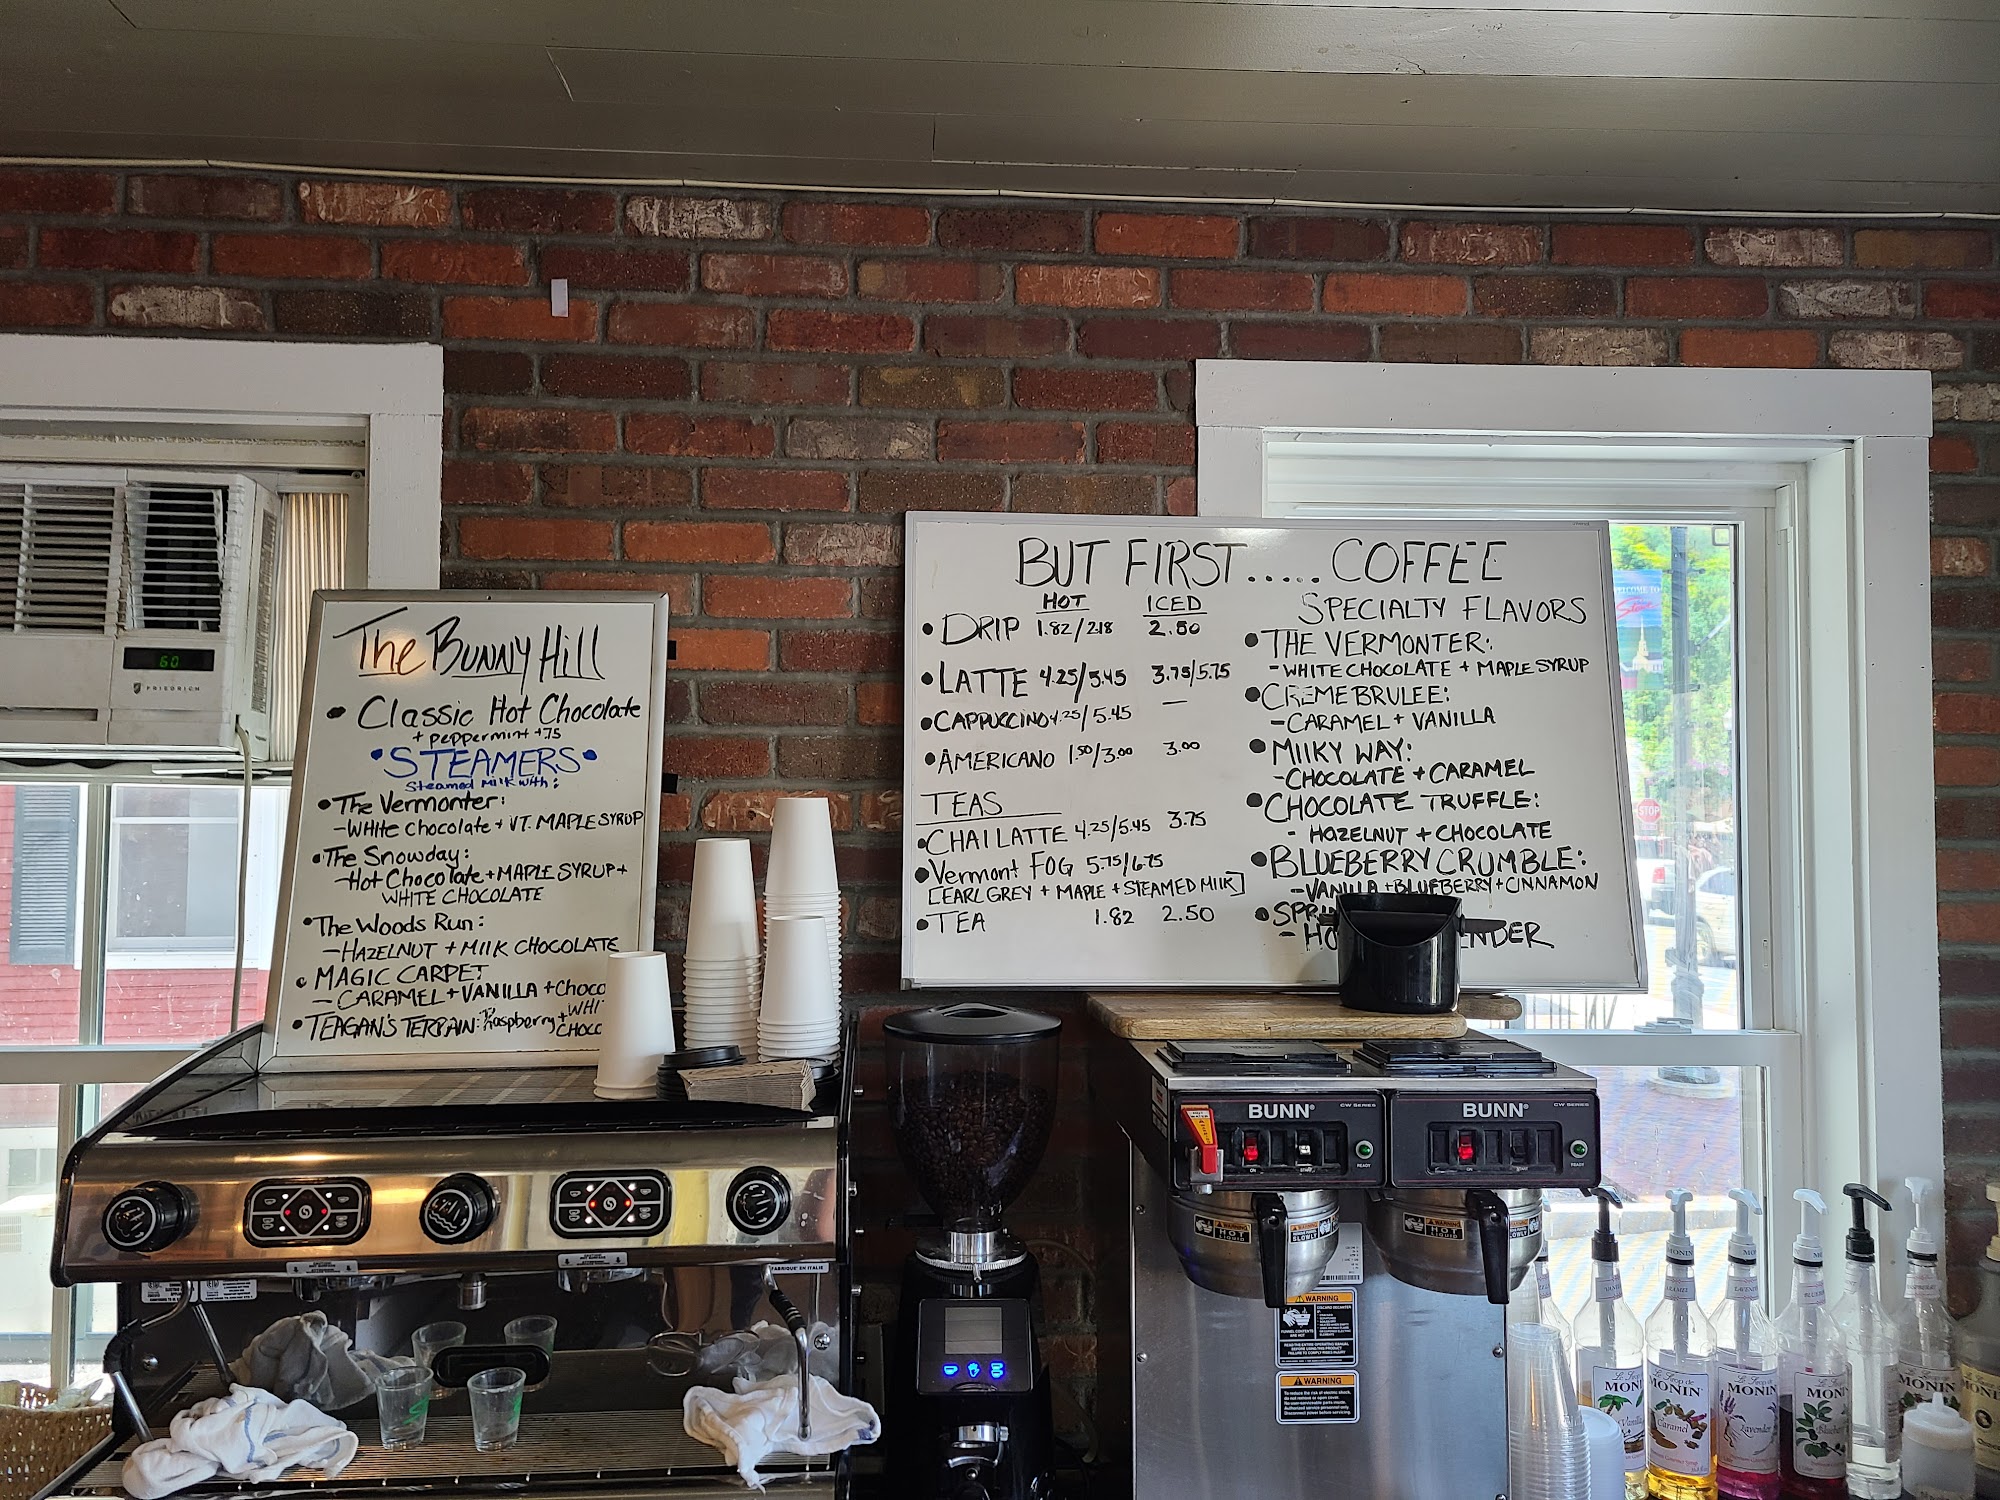 The Bunny Hill
• Classic Hot Chocolate
+ peppermint +.75
• STEAMERS •
Steamed Milk with:
• The Vermonter:
- White Chocolate + VT. MAPLE SYRUP
• The Snowday:
- Hot Chocolate + MAPLE SYRUP +
WHITE CHOCOLATE
• The Woods Run:
- HAZELNUT + MILK CHOCOLATE
• MAGIC CARPET
- CARAMEL + VANILLA + CHOCO
• TEAGAN'S TERRAIN: Raspberry +
WHI
CHOCO
BUT FIRST..... COFFEE
HOT ICED
• DRIP 1.82/2.18 2.50
• LATTE 4.25/5.45 3.75/5.75
• CAPPUCCINO 4.25/5.45 —
• AMERICANO 1.50/3.00 3.00
TEAS
• CHAI LATTE 4.25/5.45 3.75
• Vermont FOG 5.75/6.75
[EARL GREY + MAPLE + STEAMED MILK]
• TEA 1.82 2.50
SPECIALTY FLAVORS
• THE VERMONTER:
- WHITE CHOCOLATE + MAPLE SYRUP
• CREME BRULEE:
- CARAMEL + VANILLA
• MILKY WAY:
- CHOCOLATE + CARAMEL
• CHOCOLATE TRUFFLE:
- HAZELNUT + CHOCOLATE
• BLUEBERRY CRUMBLE:
- VANILLA + BLUEBERRY + CINNAMON
• SPRI
- HO ENDER
60
FRIEDRICH
STOP
BUNN
CW SERIES
ON START READY
BUNN
CW SERIES
ON START READY
FABRIQUÉ EN ITALIE
WARNING
HOT LIQUID
WARNING
HOT LIQUID
WARNING
FUNNEL CONTENTS ARE HOT
WARNING
MONIN
Vanilla
MONIN
Caramel
MONIN
Lavender
MONIN
MONIN